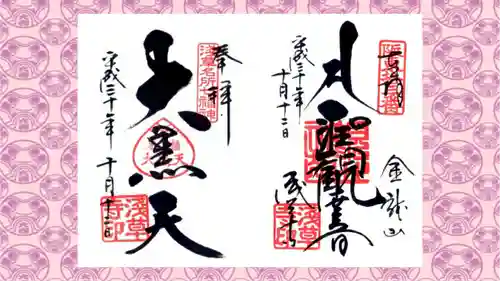 奉拝
聖観世音
金龍山
浅草寺
平成三十年
十月十二日
奉拝
浅草名所七福神
大黒天
浅草寺印
平成三十年十月十二日